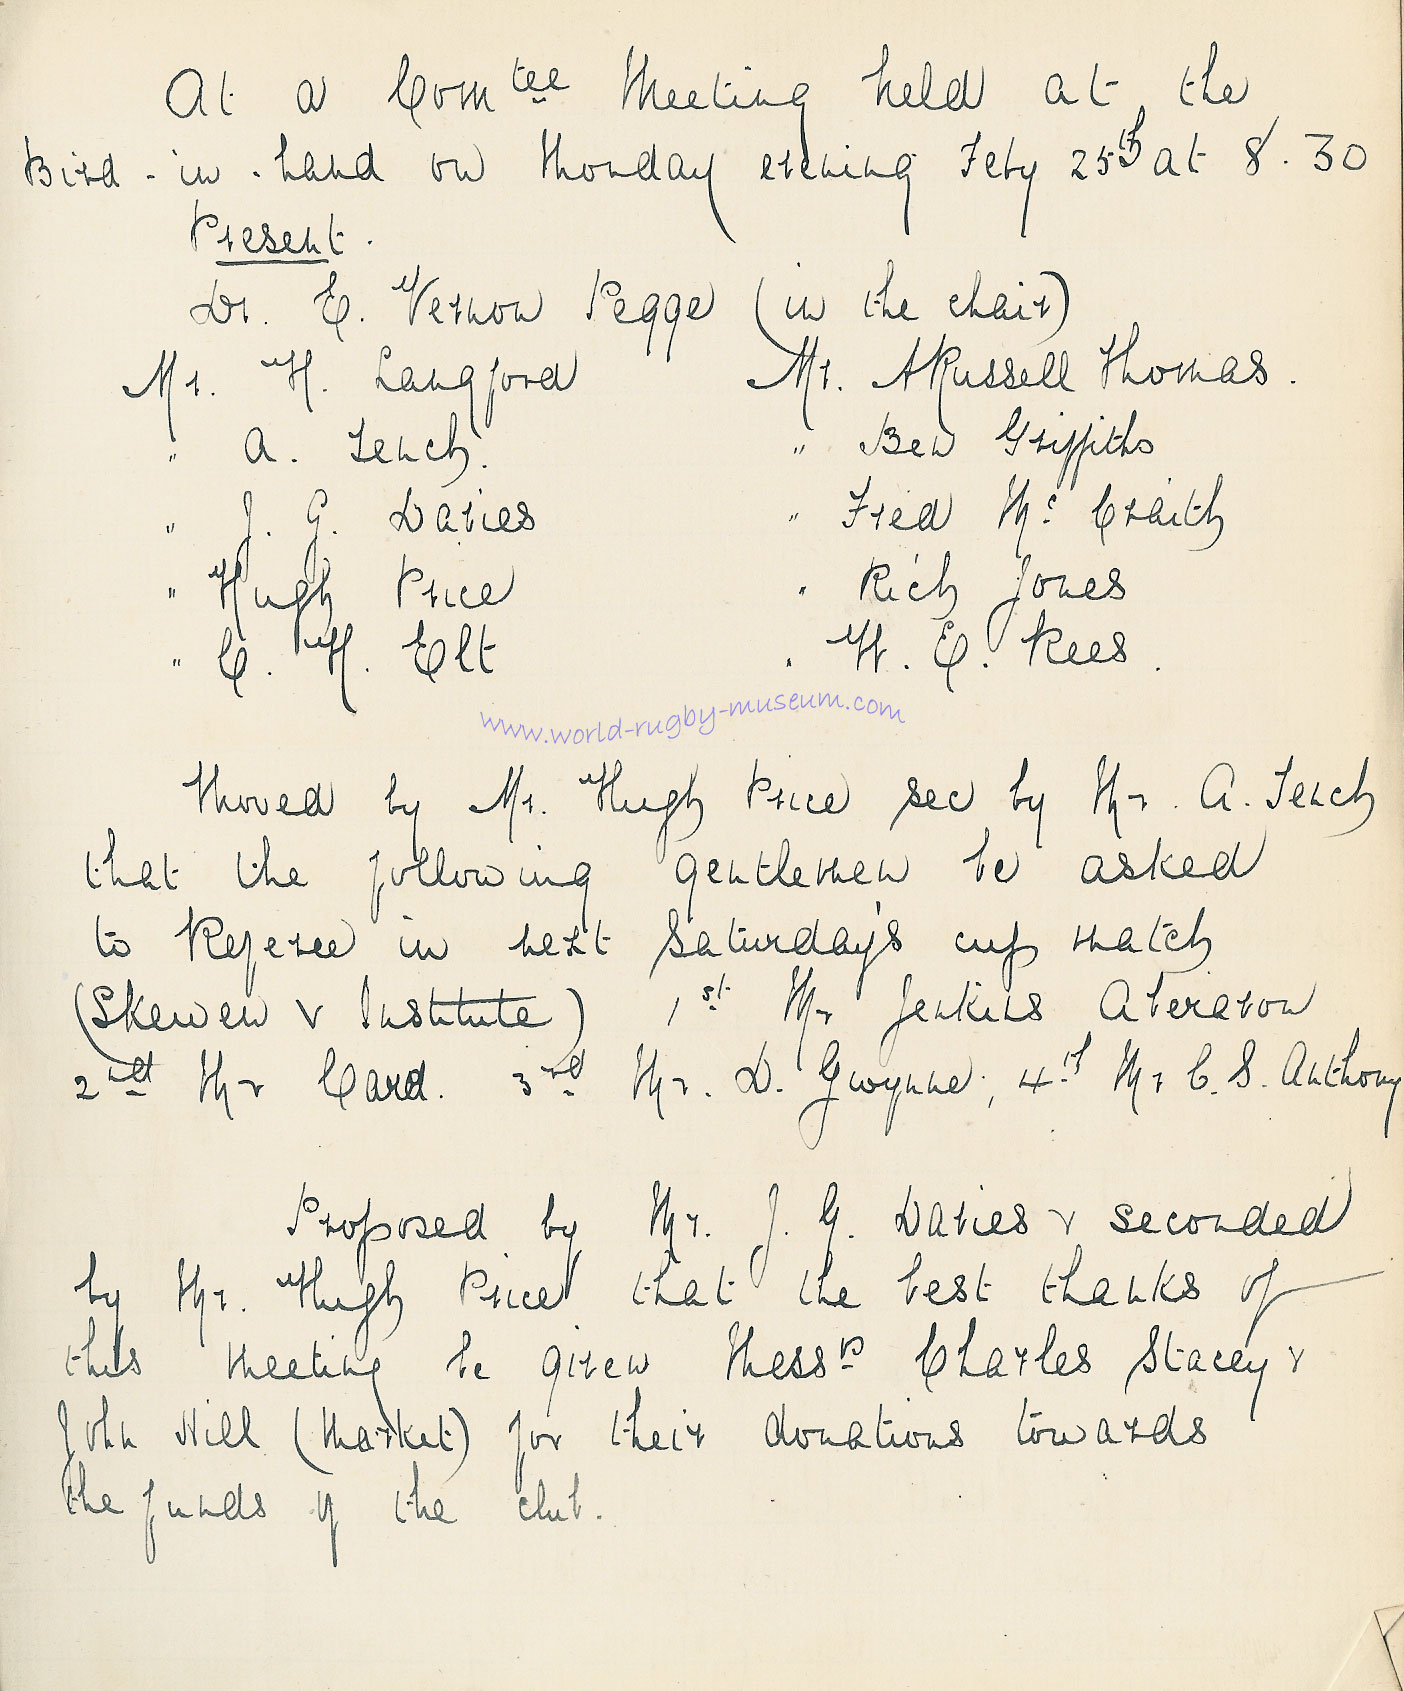 At a Com tee Meeting held at the
Bird-in-hand on Monday evening Feby 25th at 8.30
Present.
Dr. E. Vernon Pegge (in the chair)
Mr. H. Langford Mr. A Russell Thomas.
" A. Tench. " Ben Griffiths
" J. G. Davies " Fred Mc Craith
" Hugh Price " Rich Jones
" C. H. Elt " W. E. Rees.
www.world-rugby-museum.com
Moved by Mr. Hugh Price sec by Mr. A. Tench
that the following gentlemen be asked
to Referee in next Saturday's cup match
(Skewen v Institute) 1st Mr Jenkins Aberavon
2nd Mr Card. 3rd Mr. D. Gwynne; 4th Mr C. S. Anthony
Proposed by Mr. J. G. Davies & seconded
by Mr. Hugh Price that the best thanks of
this meeting be given Messrs Charles Stacey &
John Hill (Market) for their donations towards
the funds of the club.